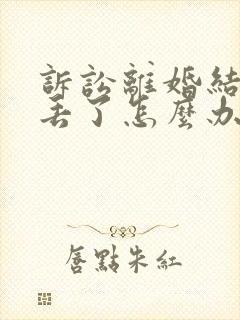 訴訟離婚結
丟了怎麼办
唇點朱紅